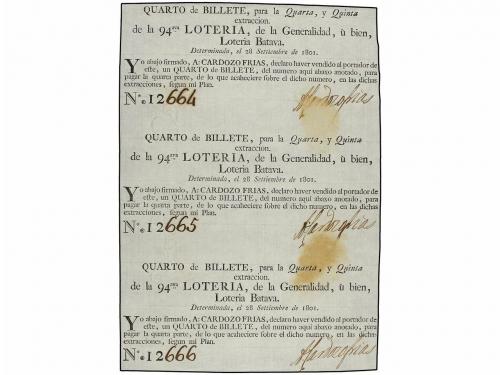 QUARTO de BILLETE, para la Quarta, y Quinta
extraccion.
de la 94ra LOTERIA, de la Generalidad, ù bien,
Loteria Batava.
Determinada, el 28 Settiembre de 1801.
Yo abajo firmado, A: CARDOZO FRIAS, declaro haver vendido al portador de
eſte, un QUARTO de BILLETE, del numero aqui abaxo anotado, para
pagar la quarta parte, de lo que acaheciere ſobre el dicho numero, en las dichas
extracciones, ſegun mi Plan.
No. 12664
QUARTO de BILLETE, para la Quarta, y Quinta
extraccion.
de la 94ra LOTERIA, de la Generalidad, ù bien,
Loteria Batava.
Determinada, el 28 Settiembre de 1801.
Yo abajo firmado, A: CARDOZO FRIAS, declaro haver vendido al portador de
eſte, un QUARTO de BILLETE, del numero aqui abaxo anotado, para
pagar la quarta parte, de lo que acaheciere ſobre el dicho numero, en las dichas
extracciones, ſegun mi Plan.
No. 12665
QUARTO de BILLETE, para la Quarta, y Quinta
extraccion.
de la 94ra LOTERIA, de la Generalidad, ù bien,
Loteria Batava.
Determinada, el 28 Settiembre de 1801.
Yo abajo firmado, A: CARDOZO FRIAS, declaro haver vendido al portador de
eſte, un QUARTO de BILLETE, del numero aqui abaxo anotado, para
pagar la quarta parte, de lo que acaheciere ſobre el dicho numero, en las dichas
extracciones, ſegun mi Plan.
No. 12666